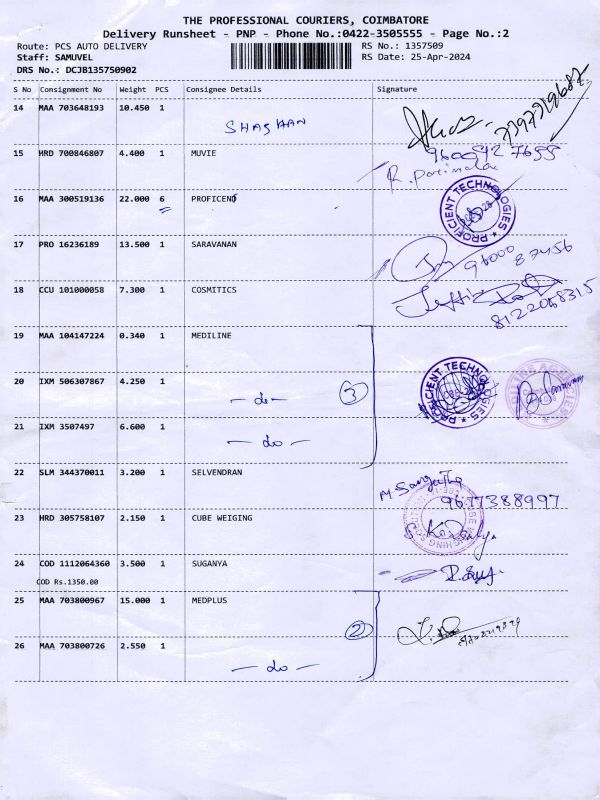 THE PROFESSIONAL COURIERS, COIMBATORE
Delivery Runsheet - PNP - Phone No.:0422-3505555 - Page No.:2
Route: PCS AUTO DELIVERY RS No.: 1357509
Staff: SAMUVEL RS Date: 25-Apr-2024
DRS No.: DCJB135750902
S No Consignment No Weight PCS Consignee Details Signature
14 MAA 703648193 10.450 1
SHASHAN
15 HRD 700846807 4.400 1 MUVIE 9600927655
16 MAA 300519136 22.000 6 PROFICENT
PROFICIENT TECHNOLOGIES
17 PRO 16236189 13.500 1 SARAVANAN 96000 87456
18 CCU 101000058 7.300 1 COSMITICS
8122068315
19 MAA 104147224 0.340 1 MEDILINE
20 IXM 506307867 4.250 1
- do - 3 PROFICIENT TECHNOLOGIES
21 IXM 3507497 6.600 1
- do -
22 SLM 344370011 3.200 1 SELVENDRAN M. Sangeetha
9677388997
23 HRD 305758107 2.150 1 CUBE WEIGING
24 COD 1112064360 3.500 1 SUGANYA
COD Rs.1350.00
25 MAA 703800967 15.000 1 MEDPLUS
2
26 MAA 703800726 2.550 1
- do -